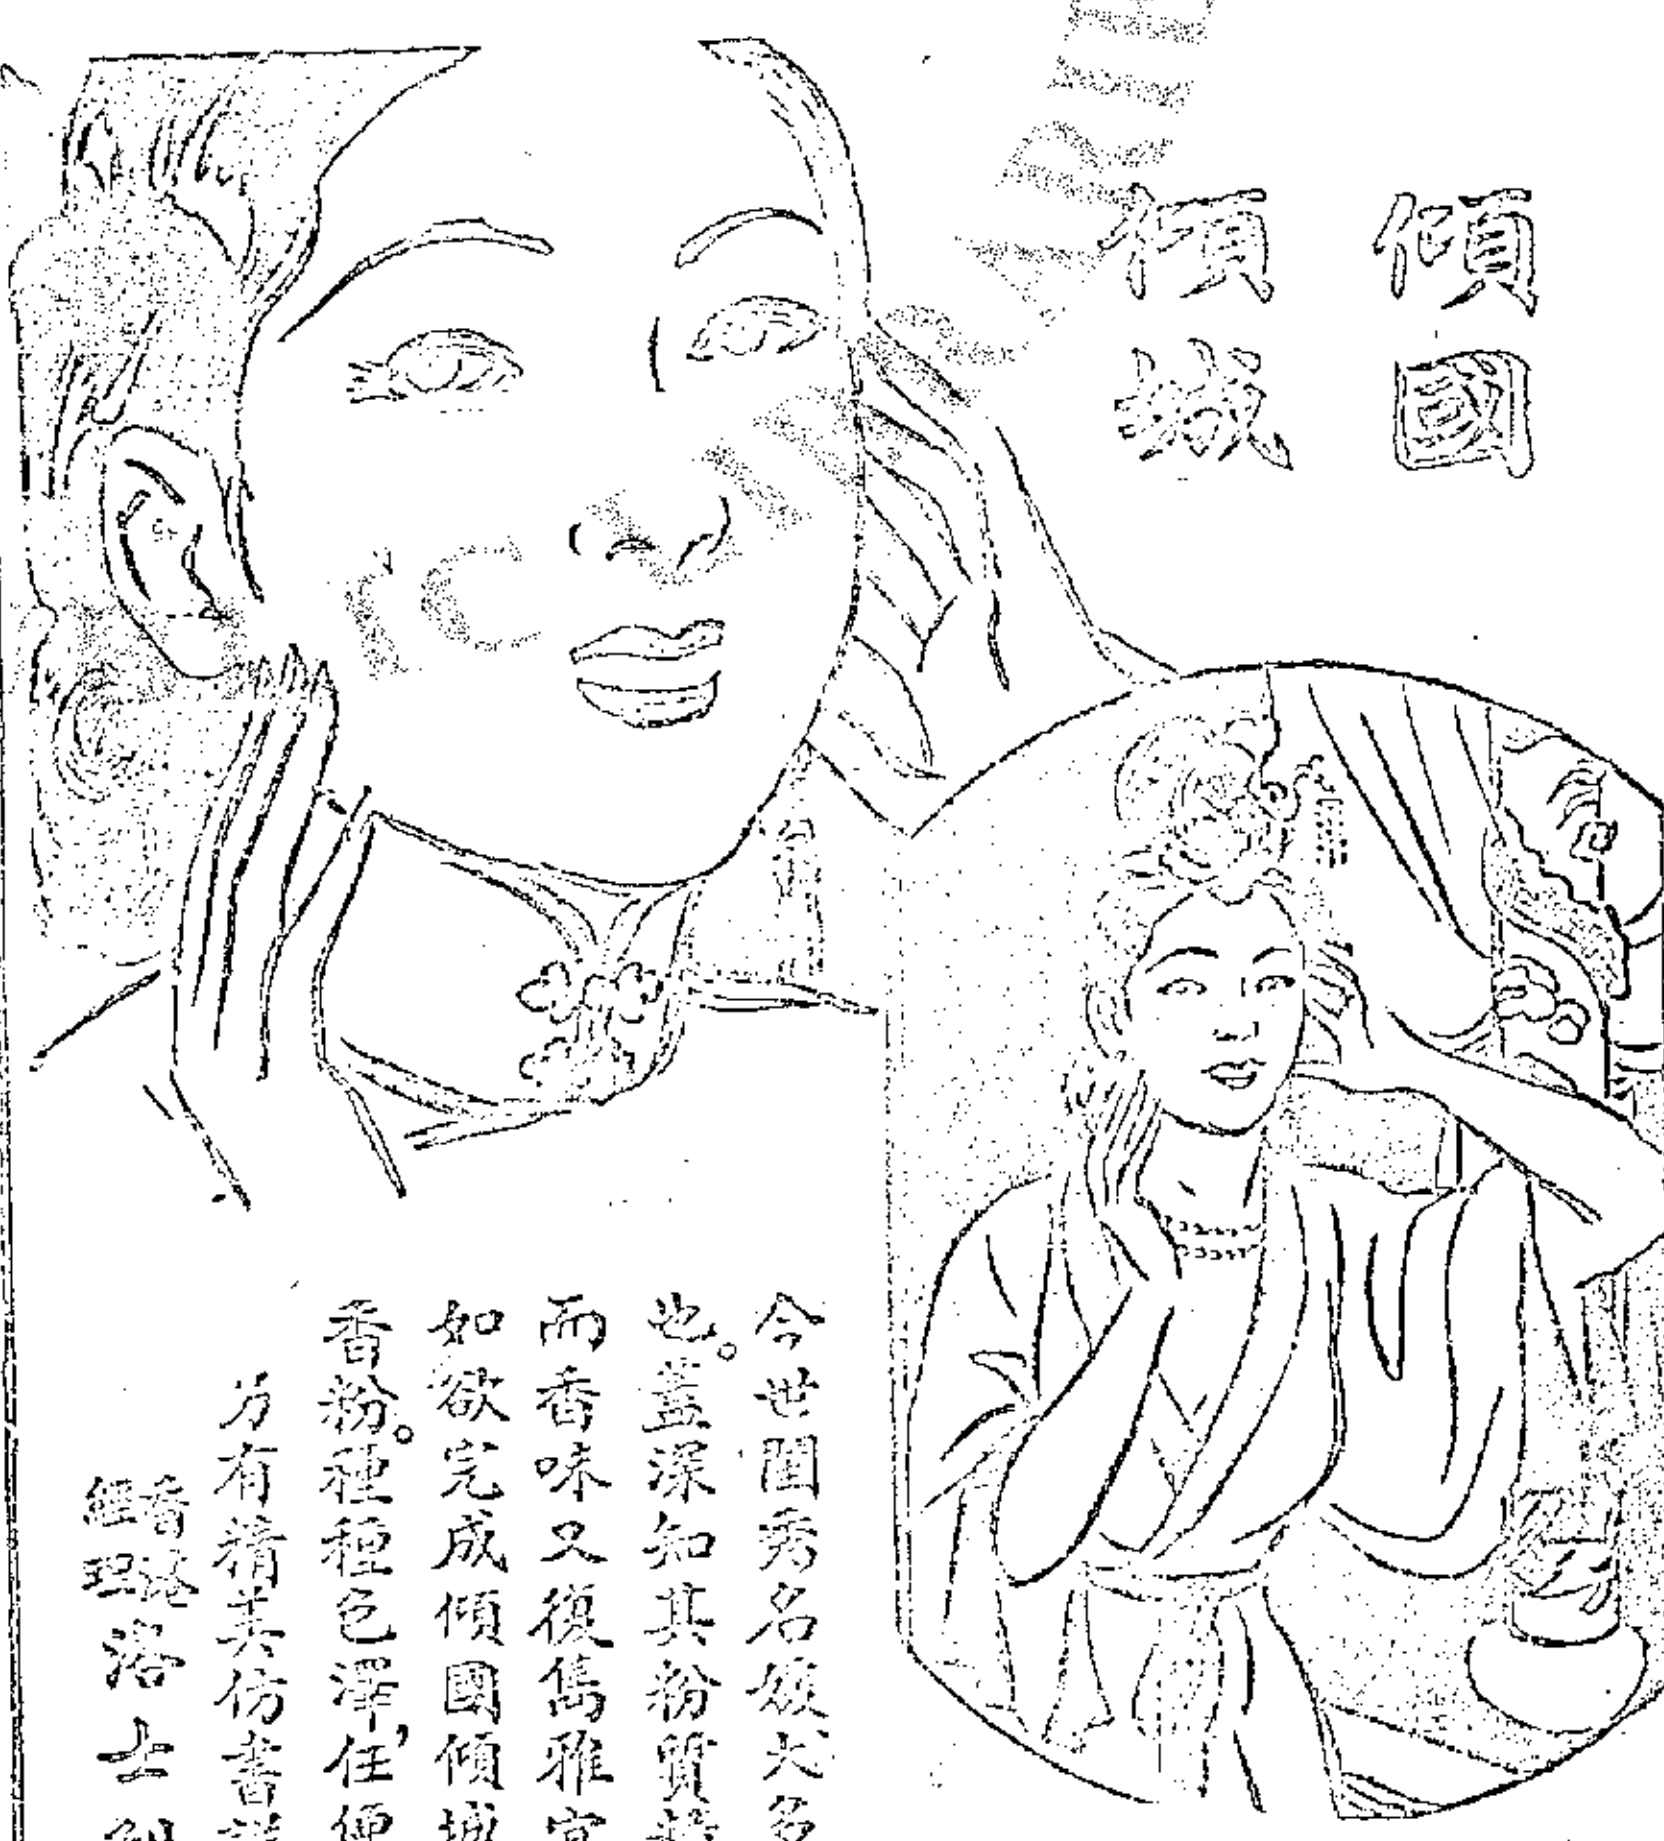 傾國
傾城
今世閨秀名媛大多
也。蓋深知其粉質
而香味又復雋雅宜
如欲完成傾國傾城
香粉。種種色澤，任便
另有精美仿書
香港
經理
洛士